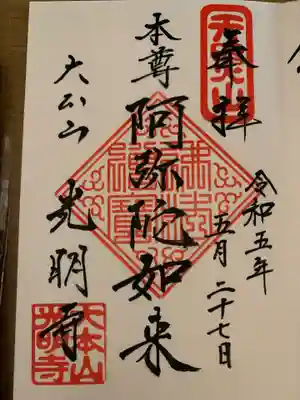 天照山
奉拝
令和五年
五月二十七日
本尊
阿弥陀如来
大本山
光明寺
大本山
光明寺